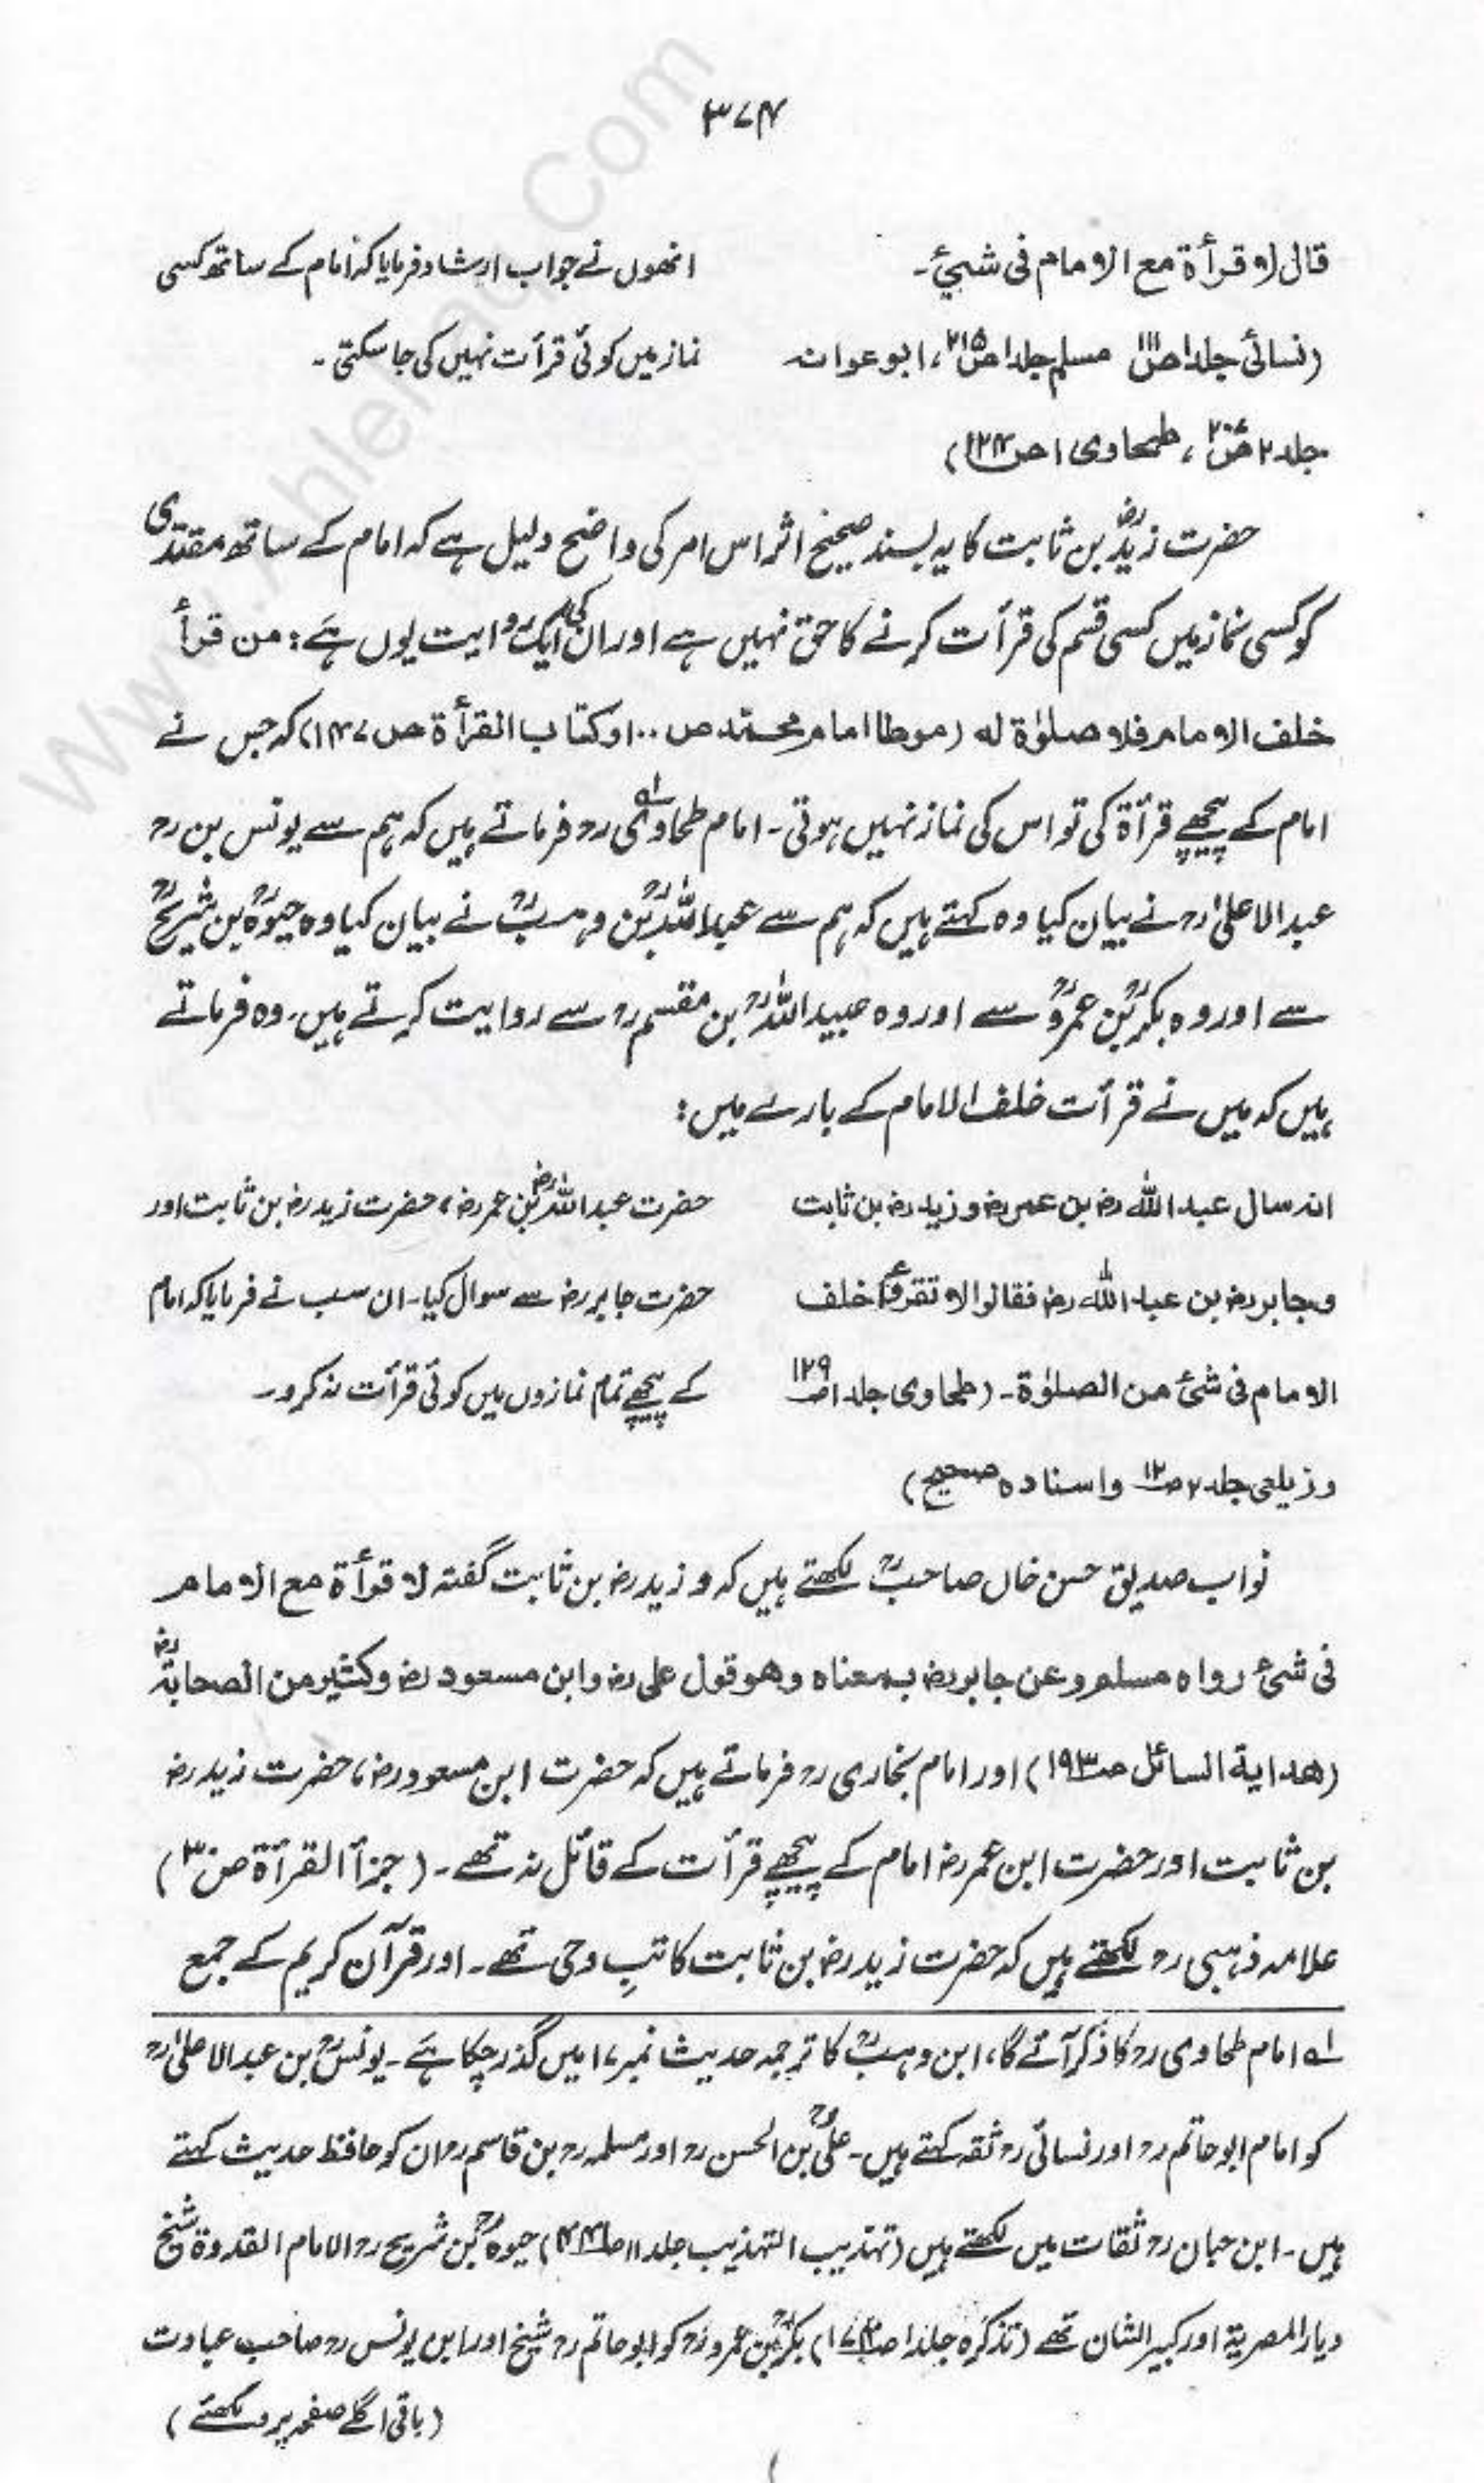 ۳۷۴
قال لا قرأة مع الامام فی شیئ۔
انھوں نے جواب ارشاد فرمایا کہ امام کے ساتھ کسی
(نسائی جلد۱ ص۱۱۱ مسلم جلد۱ ص۲۱۵، ابو عوانہ
نماز میں کوئی قرأت نہیں کی جا سکتی۔
جلد۲ ص۲۰۷، طحاوی ۱ ص۱۲۴)
حضرت زیدؓ بن ثابت کا یہ بسند صحیح اثر اس امر کی واضح دلیل ہے کہ امام کے ساتھ مقتدی
کو کسی نماز میں کسی قسم کی قرأت کرنے کا حق نہیں ہے اور ان کی ایک روایت یوں ہے: من قرأ
خلف الامام فلا صلوٰة له (موطا امام محمد ص۱۰۰ و کتاب القرأة ص ۱۴۷) کہ جس نے
امام کے پیچھے قرأة کی تو اس کی نماز نہیں ہوتی۔ امام طحاوی لہ رح فرماتے ہیں کہ ہم سے یونس بن رح
عبدالاعلیٰ رح نے بیان کیا وہ کہتے ہیں کہ ہم سے عبداللہؒ بن وہبؒ نے بیان کیا وہ حیوہؒ بن شریحؒ
سے اور وہ بکرؒ بن عمروؒ سے اور وہ عبیداللہؒ بن مقسم رح سے روایت کرتے ہیں۔ وہ فرماتے
ہیں کہ میں نے قرأت خلف الامام کے بارے میں:
انہ سال عبد اللہ رض بن عمر رض و زید رض بن ثابت
حضرت عبد اللہؓ بن عمر رض، حضرت زید رض بن ثابت اور
وجابر رض بن عبد اللہ رض فقالوا لا تقرءوا خلف
حضرت جابر رض سے سوال کیا۔ ان سب نے فرمایا کہ امام
الامام فی شئ من الصلوٰة۔ (طحاوی جلد۱ ص۱۲۹
کے پیچھے تمام نمازوں میں کوئی قرأت نہ کرو۔
و زیلعی جلد۲ ص۱۲ واسنادہ صحیح)
نواب صدیق حسن خاں صاحبؒ لکھتے ہیں کہ و زید رض بن ثابت گفتہ لا قرأة مع الامام
فی شئ رواہ مسلم وعن جابر رض بمعناہ وھو قول علی رض وابن مسعود رض وکثیر من الصحابةؓ
(ھدایة السائل ص۱۹۳) اور امام بخاری رح فرماتے ہیں کہ حضرت ابن مسعود رض، حضرت زید رض
بن ثابت اور حضرت ابن عمر رض امام کے پیچھے قرأت کے قائل نہ تھے۔ (جزأ القرأة ص۳۰)
علامہ ذہبی رح لکھتے ہیں کہ حضرت زید رض بن ثابت کاتبِ وحی تھے۔ اور قرآن کریم کے جمع
لہ امام طحاوی رح کا ذکر آئے گا، ابن وہبؒ کا ترجمہ حدیث نمبر ۱۷ میں گذر چکا ہے۔ یونسؒ بن عبدالاعلیٰ رح
کو امام ابو حاتم رح اور نسائی رح ثقہ کہتے ہیں۔ علیؒ بن الحسن رح اور مسلمہ رح بن قاسم رح ان کو حافظ حدیث کہتے
ہیں۔ ابن حبان رح ثقات میں لکھتے ہیں (تہذیب التہذیب جلد۱۱ ص۴۴۱) حیوہؒ بن شریح رح الامام القدوة شیخ
دیار المصریة اور کبیر الشان تھے (تذکرہ جلد۱ ص۱۷۴) بکرؒ بن عمرو رح کو ابو حاتم رح شیخ اور ابن یونس رح صاحب عبادت
(باقی اگلے صفحہ پر دیکھئے)